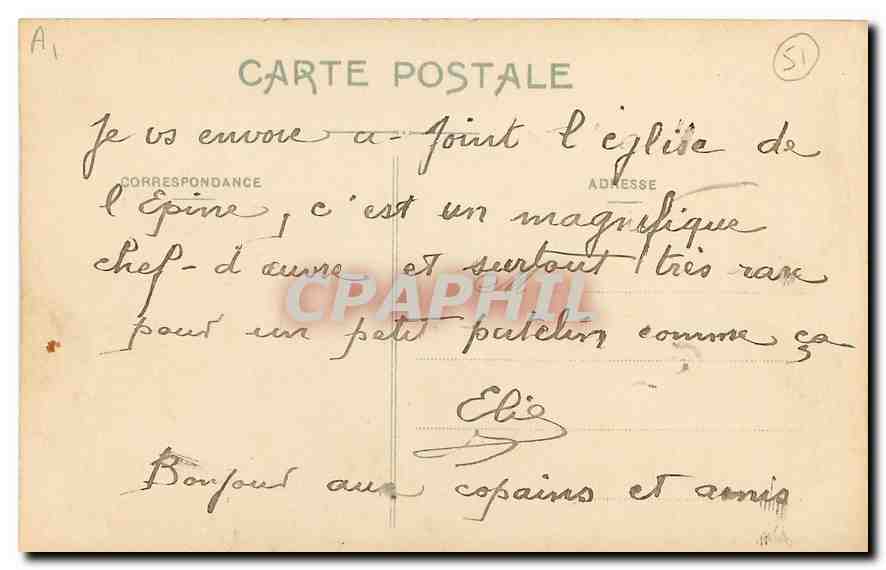 A1
51
CARTE POSTALE
Je vs envoie ci-Joint l'église de
CORRESPONDANCE
ADRESSE
l'Epine, c'est un magnifique
chef-d'œuvre et surtout très rare
CPAPHIL
pour un petit patelin comme ça
Elie
Bonjour aux copains et amis